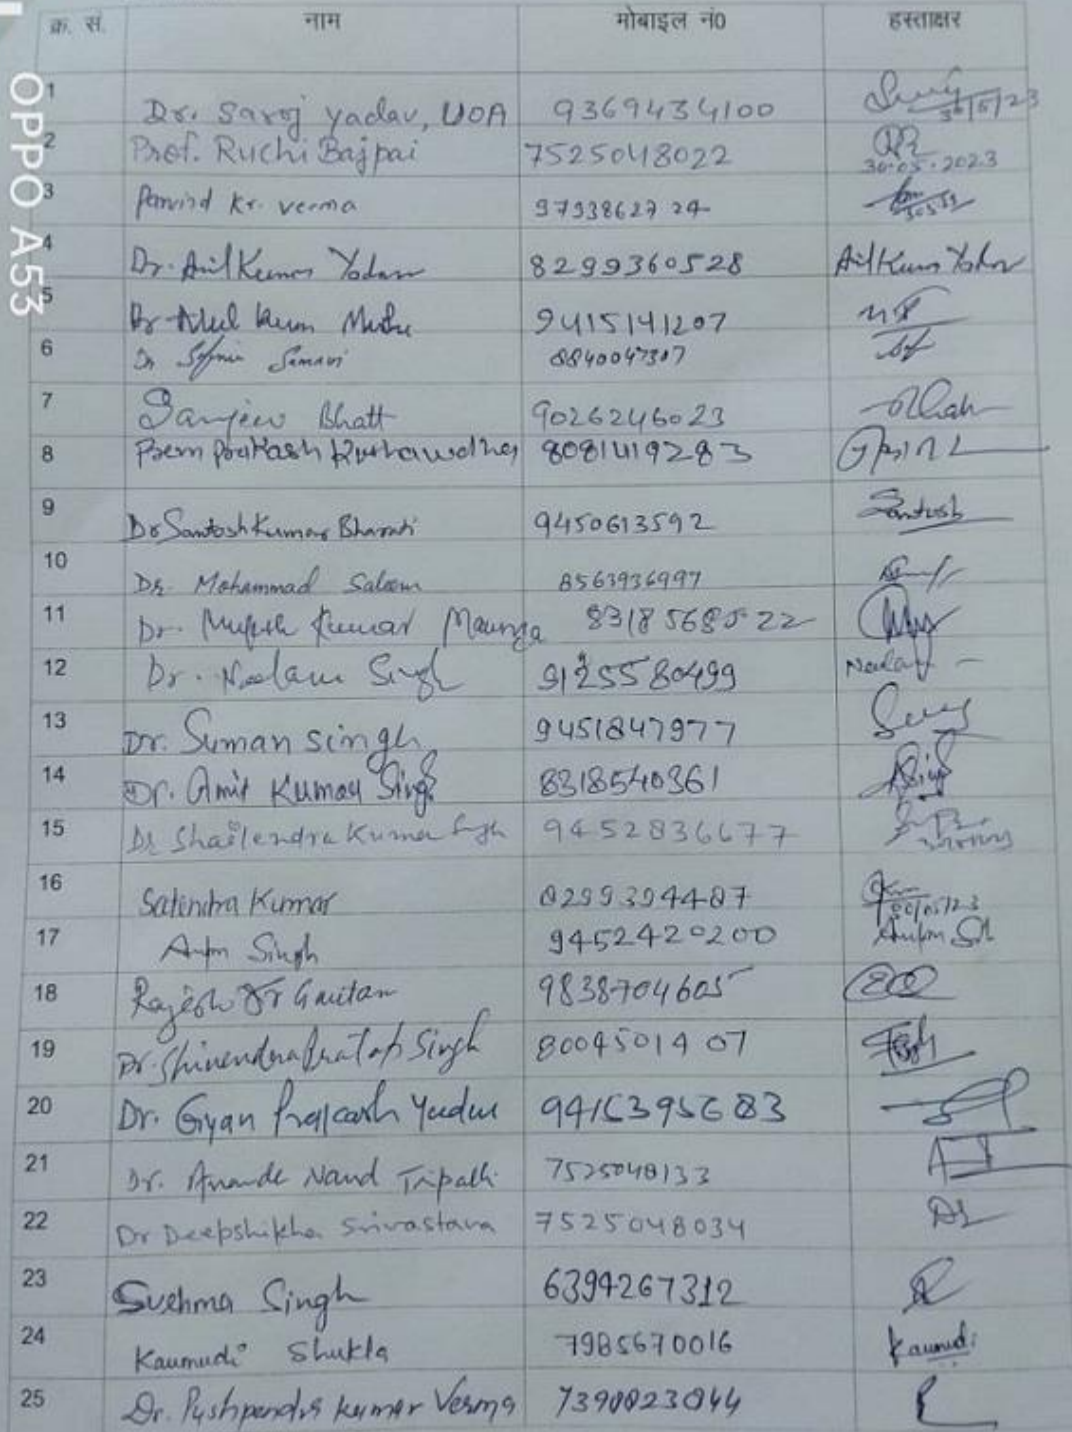 क्र. सं. नाम मोबाइल नं0 हस्ताक्षर
1 Dr. Saroj yadav, UOA 9369434100
2 Prof. Ruchi Bajpai 7525048022 30.05.2023
3 Parvind Kr. verma 9793862724
4 Dr. Anil Kumar Yadav 8299360528 Anil Kumar Yadav
5 Dr 9415141207
6 Dr 8840047307
7 Sanjeev Bhatt 9026246023
8 Prem Prakash Kushawaha 8081419283
9 Dr Santosh Kumar Bharati 9450613592 Santosh
10 Dr. Mohammad Saleem 8563936997
11 Dr. Kumar Maurya 8318568522
12 Dr. Neelam Singh 9125580499
13 Dr. Suman singh 9451847977
14 Dr. Amit Kumar Singh 8318540361
15 Dr Shailendra Kumar Singh 9452836677
16 Satendra Kumar 8299394487
17 Singh 9452420200
18 Rajesh Kr Gautam 9838704605
19 Dr. Shivendra Pratap Singh 8004501407
20 Dr. Gyan Prakash Yadav
21 Dr. Nand Tripathi 7525048133
22 Dr Deepshikha Srivastava 7525048034
23 Sushma Singh 6394267312
24 Kaumudi Shukla 7985670016 Kaumudi
25 Dr. Pushpendra Kumar Verma 7390023844
OPPO A53